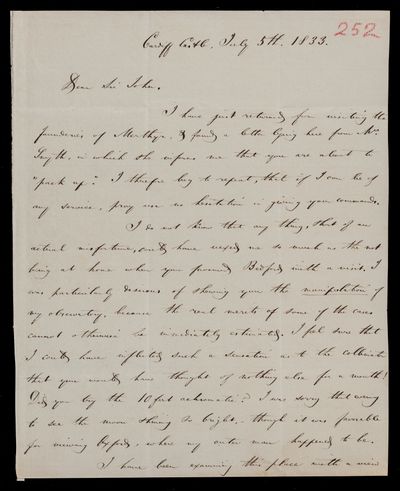 252
Cardiff Castle, July 5th. 1833.
Dear Sir John,
I have just returned from visiting the
founderies of Merthyr, & found a letter lying here from Mrs.
Smyth, in which she informs me that you are about to
"pack up". I therefore beg to repeat, that if I can be of
any service, pray use no hesitation in giving your commands.
I do not know that any thing, short of an
actual misfortune, could have vexed me so much as the not
being at home when you favoured Bedford with a visit. I
was particularly desirous of shewing you the manipulation of
my observatory, because the real merits of some of the cases
cannot otherwise be immediately estimated. I feel sure that
I could have inflicted such a sensation as to the
that you would have thought of nothing else for a month!
Did you try the 10 feet achromatic? I was sorry that evening
to see the moon shining so bright, - though it was favorable
for viewing Bedford, where my outer man happened to be.
I have been examining this place with a view